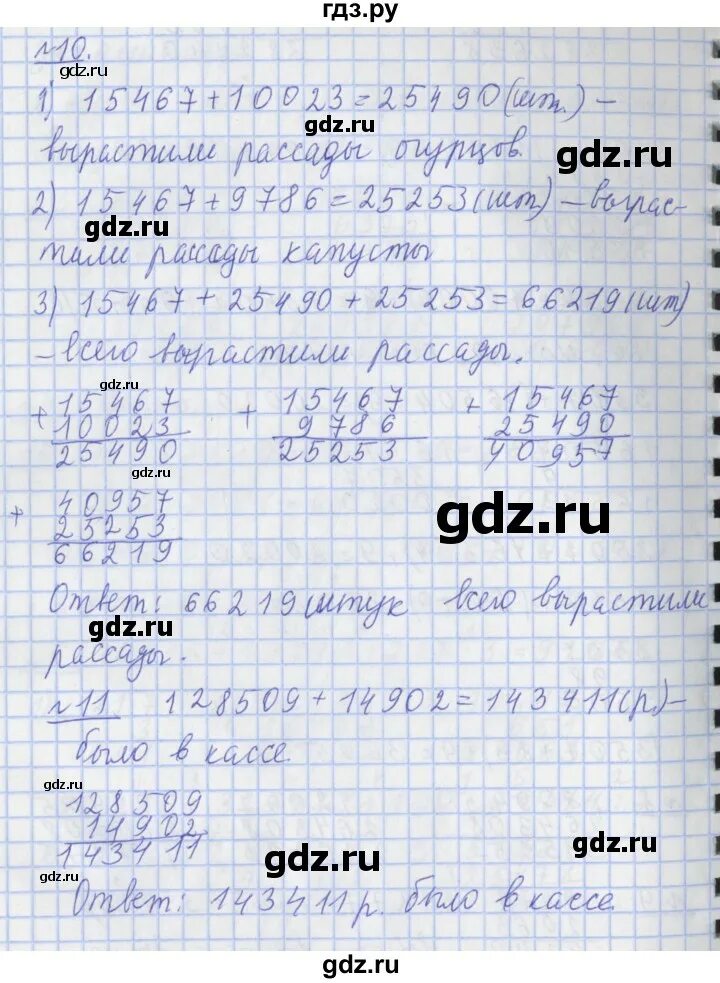 гдз.ру
№10.
gdz.ru
1) 15467+10023=25490(шт.) –
gdz.ru
вырастили рассады огурцов.
gdz.ru
2) 15467+9786=25253(шт) – вырас-
gdz.ru
тили рассады капусты
3) 15467+25490+25253=66219(шт)
– всего вырастили рассады.
gdz.ru
+ 15467 + 15467 + 15467
10023 9786 25490
25490 25253 40957
gdz.ru
+ 40957
25253
66219
gdz.ru
Ответ: 66219 штук всего вырастили
gdz.ru
рассады.
№11 128509+14902=143411(р.) –
было в кассе
gdz.ru
128509
14902
143411
gdz.ru
gdz.ru
gdz.ru
Ответ: 143411 р. было в кассе
gdz.ru